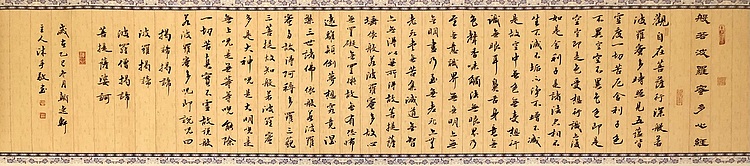 般若波羅蜜多心經
觀自在菩薩行深般若
波羅蜜多時照見五蘊皆
空度一切苦厄舍利子色
不異空空不異色色即是
空空即是色受想行識亦復
如是舍利子是諸法空相不
生不滅不垢不淨不增不減
是故空中無色無受想行
識無眼耳鼻舌身意無
色聲香味觸法無眼界乃
至無意識界無無明亦無
無明盡乃至無老死亦無老
死盡無苦集滅道無智
亦無得以無所得故菩提薩
埵依般若波羅蜜多故心
無罣礙無罣礙故無有恐怖
遠離顛倒夢想究竟涅
槃三世諸佛依般若波羅
蜜多故得阿耨多羅三藐
三菩提故知般若波羅蜜
多是大神咒是大明咒是
無上咒是無等等咒能除
一切苦真實不虛故說般
若波羅蜜多咒即說咒曰
揭諦揭諦
波羅揭諦
波羅僧揭諦
菩提薩婆訶
歲在乙巳冬月
主人沐手敬書